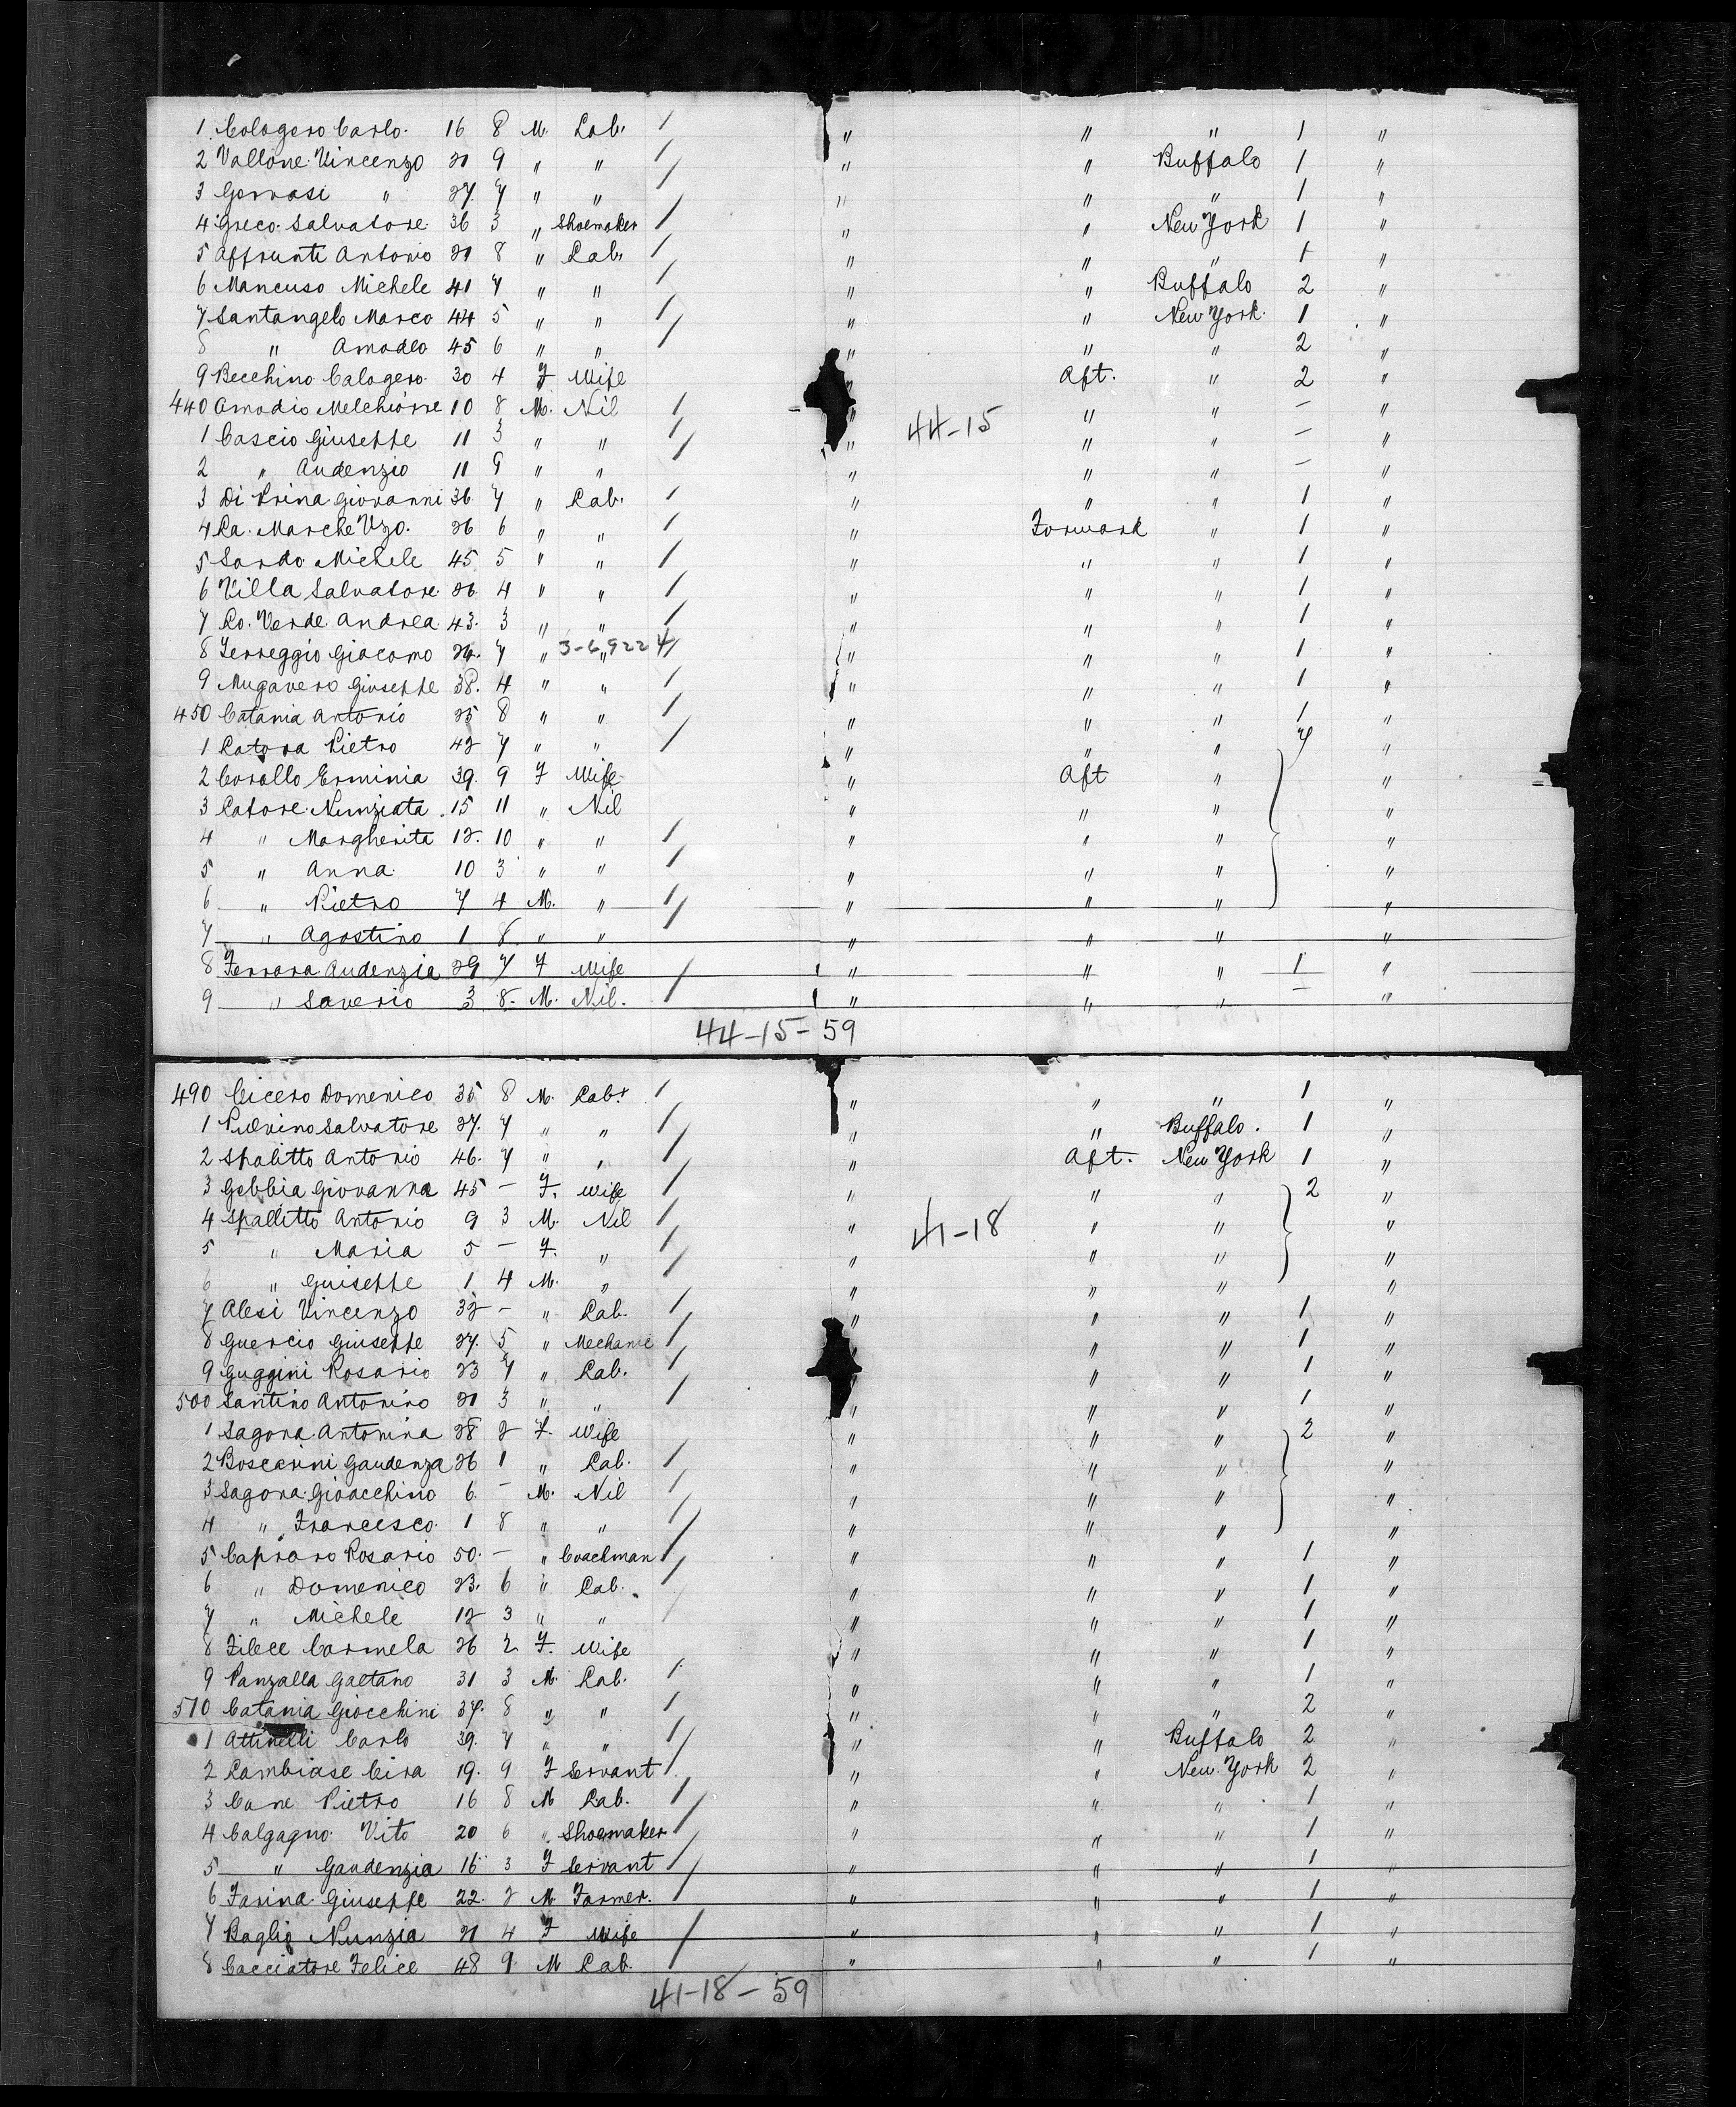 1 Cologero Carlo. 16 8 M. Lab. / " " " 1 "
2 Vallone Vincenzo 21 9 " " / " " Buffalo 1 "
3 Gervasi " 27. 7 " " / " " " 1 "
4 Greco. Salvatore 36 3 " Shoemaker / " " New York 1 "
5 Affrunti Antonio 21 8 " Lab. / " " " 1 "
6 Mancuso Michele 41 7 " " / " " Buffalo 2 "
7 Santangelo Marco 44 5 " " / " " New York. 1 "
8 " Amodeo 45 6 " " / " " " 2 "
9 Becchino Calogero. 30 4 F Wife " Aft. " 2 "
440 Amodio Melchiorre 10 8 M. Nil / " " " — "
1 Cascio Giuseppe 11 3 " " / " 44-15 " " — "
2 " Audenzio 11 9 " " " " " — "
3 Di Prina Giovanni 36 7 " Lab. / " " " 1 "
4 La. Marche Vzo. 26 6 " " / " Forward " 1 "
5 Sardo Michele 45 5 " " / " " " 1 "
6 Villa Salvatore 26 4 " " / " " " 1 "
7 Lo. Verde Andrea 43. 3 " " / " " " 1 "
8 Terreggio Giacomo 24. 7 " " / " " " 1 "
9 Mugavero Giuseppe 38. 4 " " / " " " 1 "
450 Catania Antonio 25 8 " " / " " " 1 "
1 Latora Pietro 42 7 " " / " " " 7 "
2 Corallo Erminia 39. 9 F Wife " Aft " "
3 Latore Nunziata. 15 11 " Nil " " " "
4 " Margherita 12. 10 " " / " " " "
5 " Anna. 10 3 " " / " " " "
6 " Pietro 7 4 M. " / " " " "
7 " Agostino 1 8. " " " " " "
8 Ferrara Audenzia 29 7 F Wife / 1 " " " 1 "
9 " Saverio 3 8. M. Nil. / 1 " " " — "
44-15-59
490 Cicero Domenico 35 8 M. Lab. / " " " 1 "
1 Pulvino Salvatore 27. 7 " " / " " Buffalo. 1 "
2 Spalitto Antonio 46. 7 " " / " Aft. New York 1 "
3 Gebbia Giovanna 45 — F. Wife / " " " 2 "
4 Spallitto Antonio 9 3 M. Nil / " 41-18 " " "
5 " Maria 5 — F. " / " " " "
6 " Guiseppe 1 4 M. " / " " " "
7 Alesi Vincenzo 32 — " Lab. / " " " 1 "
8 Guercio Giuseppe 27. 5 " Mechanic / " " " 1 "
9 Guggini Rosario 23 7 " Lab. / " " " 1 "
500 Santino Antonino 21 3 " " / " " " 1 "
1 Sagona Antonina 28 2 F. Wife " " " 2 "
2 Boscarini Gaudenza 26 1 " Lab. / " " " "
3 Sagona Gioacchino 6. — M. Nil / " " " "
4 " Francesco. 1 8 " " / " " " "
5 Capraro Rosario 50. — " Coachman / " " " 1 "
6 " Domenico 23. 6 " Lab. / " " " 1 "
7 " Michele 12 3 " " / " " " 1 "
8 Filece Carmela 26 2 F. Wife " " " 1 "
9 Panzalla Gaetano 31 3 M. Lab. / " " " 1 "
510 Catania Giocchini 37. 8 " " / " " " 2 "
1 Attinelli Carlo 39. 7 " " / " " Buffalo 2 "
2 Lambiase Cira 19. 9 F Servant / " " New York 2 "
3 Cane Pietro 16 8 M Lab. / " " " 1 "
4 Calgagno. Vito 20 6 " Shoemaker / " " " 1 "
5 " Gaudenzia 16 3 F Servant / " " " 1 "
6 Farina Giuseppe 22. 2 M Farmer. / " " " 1 "
7 Baglio Nunzia 21 4 F Wife / " " " 1 "
8 Cacciatore Felice 48 9. M Lab. / " " " 1 "
41-18-59